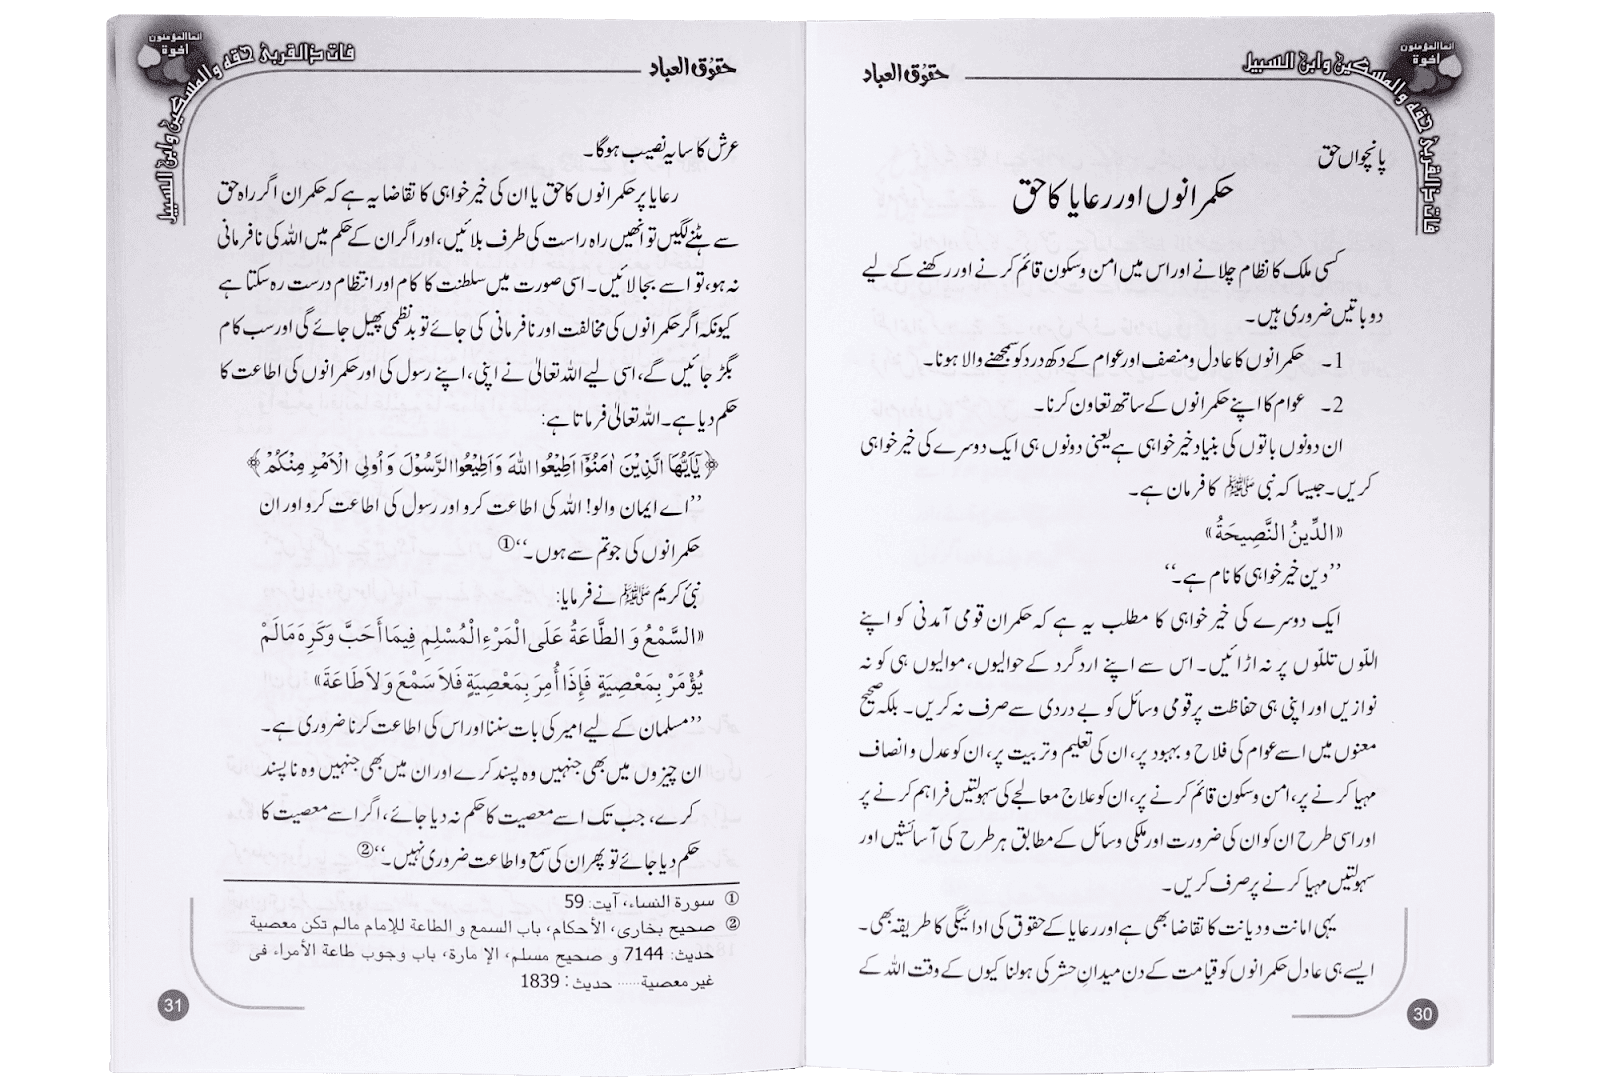 انما المؤمنون
اخوة
فات ذالقربیٰ حقه والمسکین وابن السبیل
حقوق العباد
پانچواں حق
حکمرانوں اور رعایا کا حق
کسی ملک کا نظام چلانے اور اس میں امن وسکون قائم کرنے اور رکھنے کے لیے
دو باتیں ضروری ہیں۔
1۔ حکمرانوں کا عادل ومنصف اور عوام کے دکھ درد کو سمجھنے والا ہونا۔
2۔ عوام کا اپنے حکمرانوں کے ساتھ تعاون کرنا۔
ان دونوں باتوں کی بنیاد خیر خواہی ہے یعنی دونوں ہی ایک دوسرے کی خیر خواہی
کریں۔ جیسا کہ نبی ﷺ کا فرمان ہے۔
«الدِّينُ النَّصِيحَةُ»
’’دین خیر خواہی کا نام ہے۔‘‘
ایک دوسرے کی خیر خواہی کا مطلب یہ ہے کہ حکمران قومی آمدنی کو اپنے
اللّوں تللّوں پر نہ اڑائیں۔ اس سے اپنے ارد گرد کے حوالیوں، موالیوں ہی کو نہ
نوازیں اور اپنی ہی حفاظت پر قومی وسائل کو بے دردی سے صرف نہ کریں۔ بلکہ صحیح
معنوں میں اسے عوام کی فلاح و بہبود پر، ان کی تعلیم وتربیت پر، ان کو عدل وانصاف
مہیا کرنے پر، امن وسکون قائم کرنے پر، ان کو علاج معالجے کی سہولتیں فراہم کرنے پر
اور اسی طرح ان کو ان کی ضرورت اور ملکی وسائل کے مطابق ہر طرح کی آسائشیں اور
سہولتیں مہیا کرنے پر صرف کریں۔
یہی امانت ودیانت کا تقاضا بھی ہے اور رعایا کے حقوق کی ادائیگی کا طریقہ بھی۔
ایسے ہی عادل حکمرانوں کو قیامت کے دن میدانِ حشر کی ہولنا کیوں کے وقت اللہ کے
30
انما المؤمنون
اخوة
فات ذالقربیٰ حقه والمسکین وابن السبیل
حقوق العباد
عرش کا سایہ نصیب ہوگا۔
رعایا پر حکمرانوں کا حق یا ان کی خیر خواہی کا تقاضا یہ ہے کہ حکمران اگر راہ حق
سے ہٹنے لگیں تو انھیں راہ راست کی طرف بلائیں، اور اگر ان کے حکم میں اللہ کی نافرمانی
نہ ہو، تو اسے بجا لائیں۔ اسی صورت میں سلطنت کا کام اور انتظام درست رہ سکتا ہے
کیونکہ اگر حکمرانوں کی مخالفت اور نافرمانی کی جائے تو بدنظمی پھیل جائے گی اور سب کام
بگڑ جائیں گے، اسی لیے اللہ تعالیٰ نے اپنی، اپنے رسول کی اور حکمرانوں کی اطاعت کا
حکم دیا ہے۔ اللہ تعالیٰ فرماتا ہے:
﴿يٰٓاَيُّهَا الَّذِيْنَ اٰمَنُوْٓا اَطِيْعُوا اللّٰهَ وَاَطِيْعُوا الرَّسُوْلَ وَاُولِى الْاَمْرِ مِنْكُمْ﴾
’’اے ایمان والو! اللہ کی اطاعت کرو اور رسول کی اطاعت کرو اور ان
حکمرانوں کی جو تم سے ہوں۔‘‘①
نبیٔ کریم ﷺ نے فرمایا:
«السَّمْعُ وَ الطَّاعَةُ عَلَى الْمَرْءِ الْمُسْلِمِ فِيمَا أَحَبَّ وَكَرِهَ مَالَمْ
يُؤْمَرْ بِمَعْصِيَةٍ فَإِذَا أُمِرَ بِمَعْصِيَةٍ فَلَا سَمْعَ وَلَا طَاعَةَ»
’’مسلمان کے لیے امیر کی بات سننا اور اس کی اطاعت کرنا ضروری ہے۔
ان چیزوں میں بھی جنہیں وہ پسند کرے اور ان میں بھی جنہیں وہ ناپسند
کرے، جب تک اسے معصیت کا حکم نہ دیا جائے، اگر اسے معصیت کا
حکم دیا جائے تو پھر ان کی سمع واطاعت ضروری نہیں۔‘‘②
① سورة النساء، آیت: 59
② صحیح بخاری، الأحکام، باب السمع و الطاعة للإمام مالم تکن معصیة
حدیث: 7144 و صحیح مسلم، الإ مارة، باب وجوب طاعة الأمراء فی
غیر معصیة...... حدیث: 1839
31